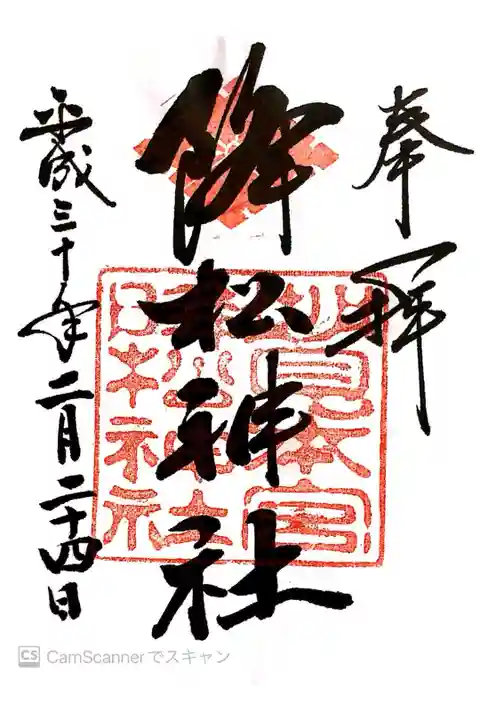 奉拝
降松神社
平成三十年二月二十四日
妙見本宮
CS CamScannerでスキャン